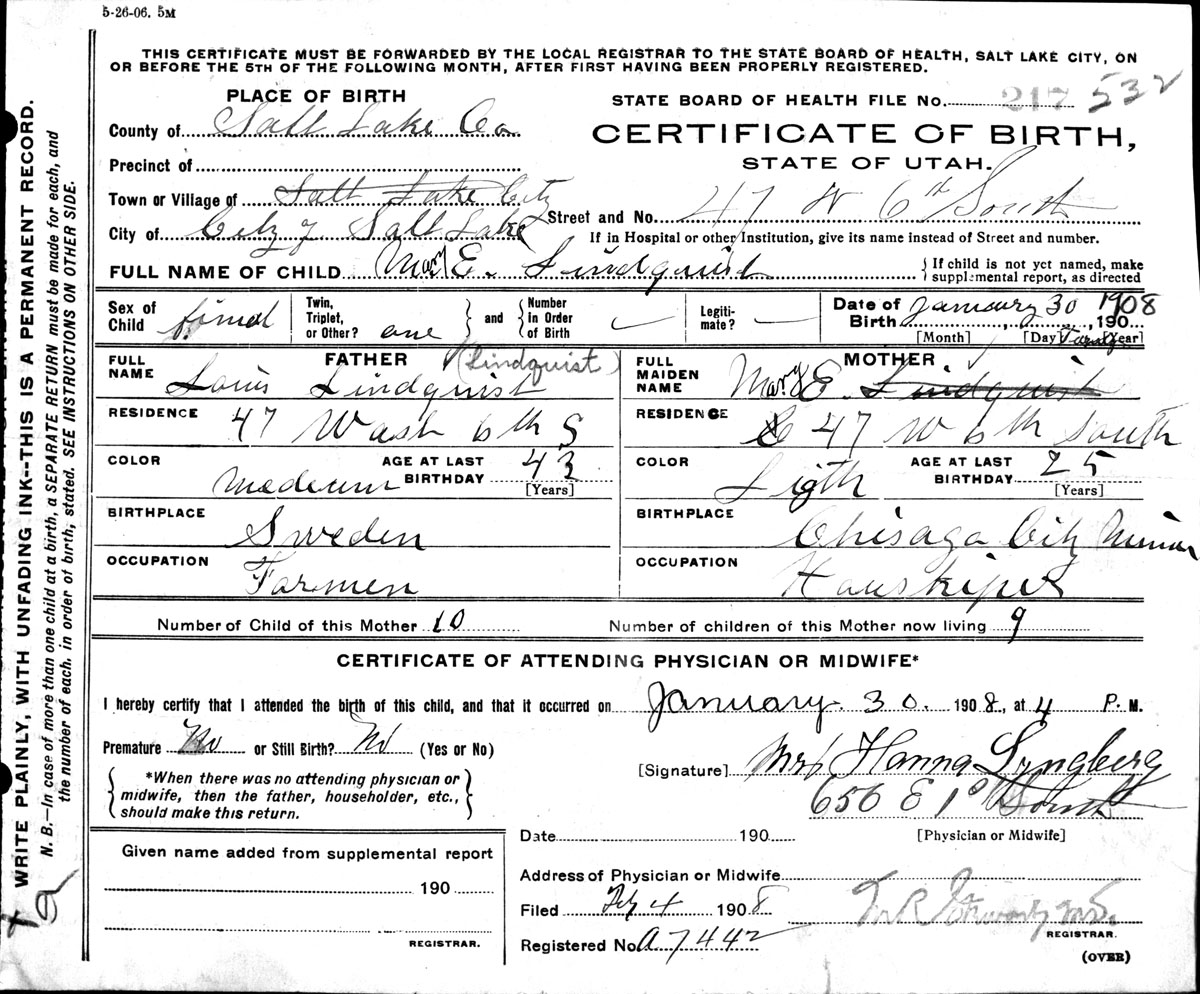 5-26-06. 5M
THIS CERTIFICATE MUST BE FORWARDED BY THE LOCAL REGISTRAR TO THE STATE BOARD OF HEALTH, SALT LAKE CITY, ON
OR BEFORE THE 5TH OF THE FOLLOWING MONTH, AFTER FIRST HAVING BEEN PROPERLY REGISTERED.
PLACE OF BIRTH
STATE BOARD OF HEALTH FILE No. 217 532
County of Salt Lake Co
CERTIFICATE OF BIRTH,
STATE OF UTAH.
Precinct of
Town or Village of Salt Lake City
Street and No. 47 W 6th South
City of City of Salt Lake
If in Hospital or other Institution, give its name instead of Street and number.
FULL NAME OF CHILD Mary E. Lindquist
{ If child is not yet named, make
supplemental report, as directed
Sex of Child fimal
Twin, Triplet, or Other? one
and
Number in Order of Birth
Legitimate?
Date of Birth January 30 1908, 190
[Month] [Day] [Year]
FATHER
FULL NAME Louis Lindquist (Lindquist)
RESIDENCE 47 Wash 6th S
COLOR Medeum
AGE AT LAST BIRTHDAY 43 [Years]
BIRTHPLACE Sweden
OCCUPATION Farmen
MOTHER
FULL MAIDEN NAME Mary E. Lindquist
RESIDENCE 47 W 6th South
COLOR Ligth
AGE AT LAST BIRTHDAY 25 [Years]
BIRTHPLACE Chisago City
OCCUPATION Hauskiper
Number of Child of this Mother 10
Number of children of this Mother now living 9
CERTIFICATE OF ATTENDING PHYSICIAN OR MIDWIFE*
I hereby certify that I attended the birth of this child, and that it occurred on January 30. 1908, at 4 P. M.
Premature No or Still Birth? No (Yes or No)
*When there was no attending physician or
midwife, then the father, householder, etc.,
should make this return.
[Signature] Mrs Hanna Lyngberg
656 E 1st South
Date 190
[Physician or Midwife]
Given name added from supplemental report
190
REGISTRAR.
Address of Physician or Midwife
Filed Feb 4 1908
REGISTRAR.
Registered No. A 7442
(OVER)
WRITE PLAINLY, WITH UNFADING INK--THIS IS A PERMANENT RECORD.
N. B.—In case of more than one child at a birth, a SEPARATE RETURN must be made for each, and
the number of each, in order of birth, stated. SEE INSTRUCTIONS ON OTHER SIDE.